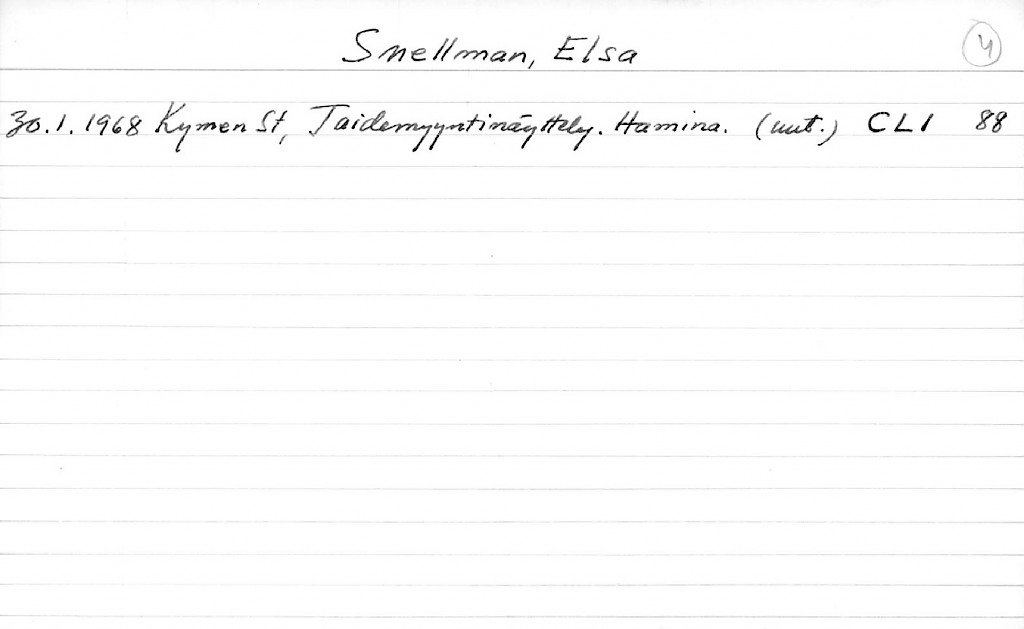 Snellman, Elsa 4
30.1.1968 Kymen St, Taidemyyntinäyttely. Hamina. (uut.) CLI 88